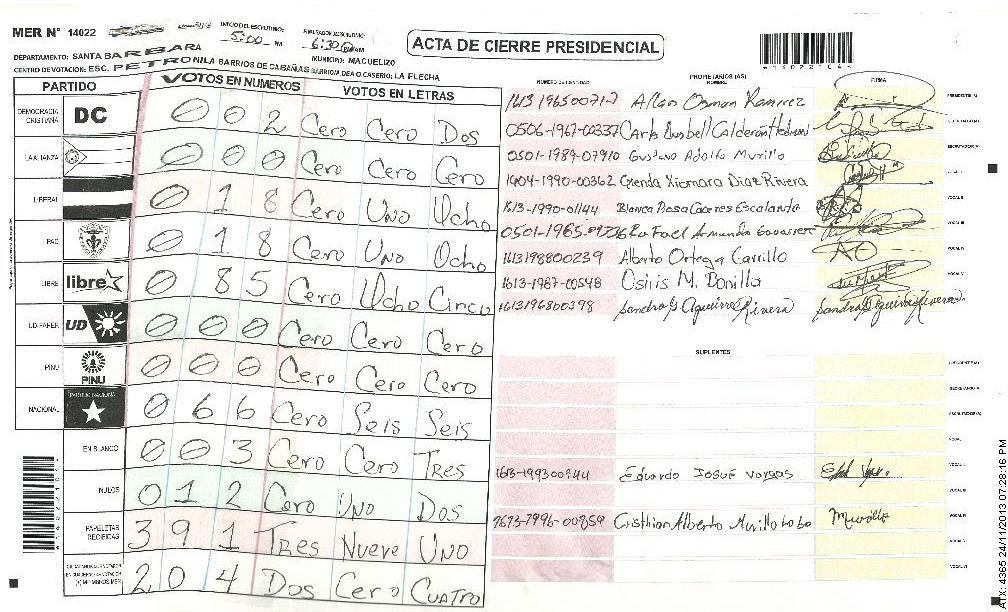 MER N° 14022
INICIO DEL ESCRUTINIO: 5:00 PM
6:30 PM
ACTA DE CIERRE PRESIDENCIAL
DEPARTAMENTO: SANTA BARBARA
MUNICIPIO: MACUELIZO
CENTRO DE VOTACION: ESC. PETRONILA BARRIOS DE CABAÑAS BARRIO, ALDEA O CASERIO: LA FLECHA
PARTIDO VOTOS EN NUMEROS VOTOS EN LETRAS
DEMOCRACIA CRISTIANA DC 0 0 2 Cero Cero Dos
LA ALIANZA 0 0 0 Cero Cero Cero
LIBERAL 0 1 8 Cero Uno Ocho
PAC 0 1 8 Cero Uno Ocho
LIBRE libre 0 85 Cero Ocho Cinco
UD-FAPER UD 0 0 0 Cero Cero Cero
PINU PINU 0 0 0 Cero Cero Cero
NACIONAL PARTIDO NACIONAL 0 6 6 Cero Seis Seis
EN BLANCO 0 0 3 Cero Cero Tres
NULOS 0 1 2 Cero Uno Dos
PAPELETAS RECIBIDAS 3 9 1 Tres Nueve Uno
2 0 4 Dos Cero Cuatro
NUMERO DE IDENTIDAD PROPIETARIOS (AS) FIRMA
1613 19650071-7 Allan Osman Ramirez
0506-1967-00337 Carla
0501-1989-07910 Gustavo Adolfo Murillo
1404-1990-00362 Glenda Xiomara Diaz Rivera
1613-1990-01144 Blanca Rosa Caceres Escalante
Rafael Armando
1613198800239 Alberto Ortega Carrillo
1613-1987-00548 Osiris M. Bonilla
1613196800398 Sandra Aguirre Rivera Sandra Aguirre Rivera
SUPLENTES
Eduardo Josué Vargas
Cristhian Alberto Murillo Lobo Murillo
ATX: 4365 24/11/2013 07:28:16 PM